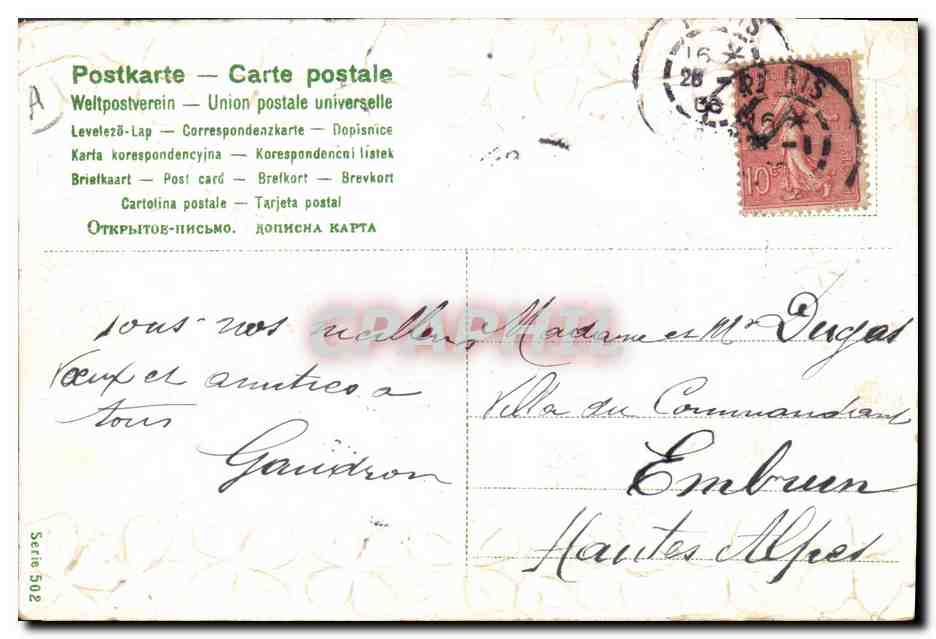 Postkarte — Carte postale
Weltpostverein — Union postale universelle
Levelező-Lap — Correspondenzkarte — Dopisnice
Karta korespondencyjna — Korespondencni listek
Briefkaart — Post card — Brefkort — Brevkort
Cartolina postale — Tarjeta postal
Открытое-письмо. дописна карта
A
10c
tous nos meilleurs
Vœux et amitiés a
tous
Gaudron
Madame et Mr Dugas
Villa du Commandant
Embrun
Hautes Alpes
Serie 502
CPAPHIL